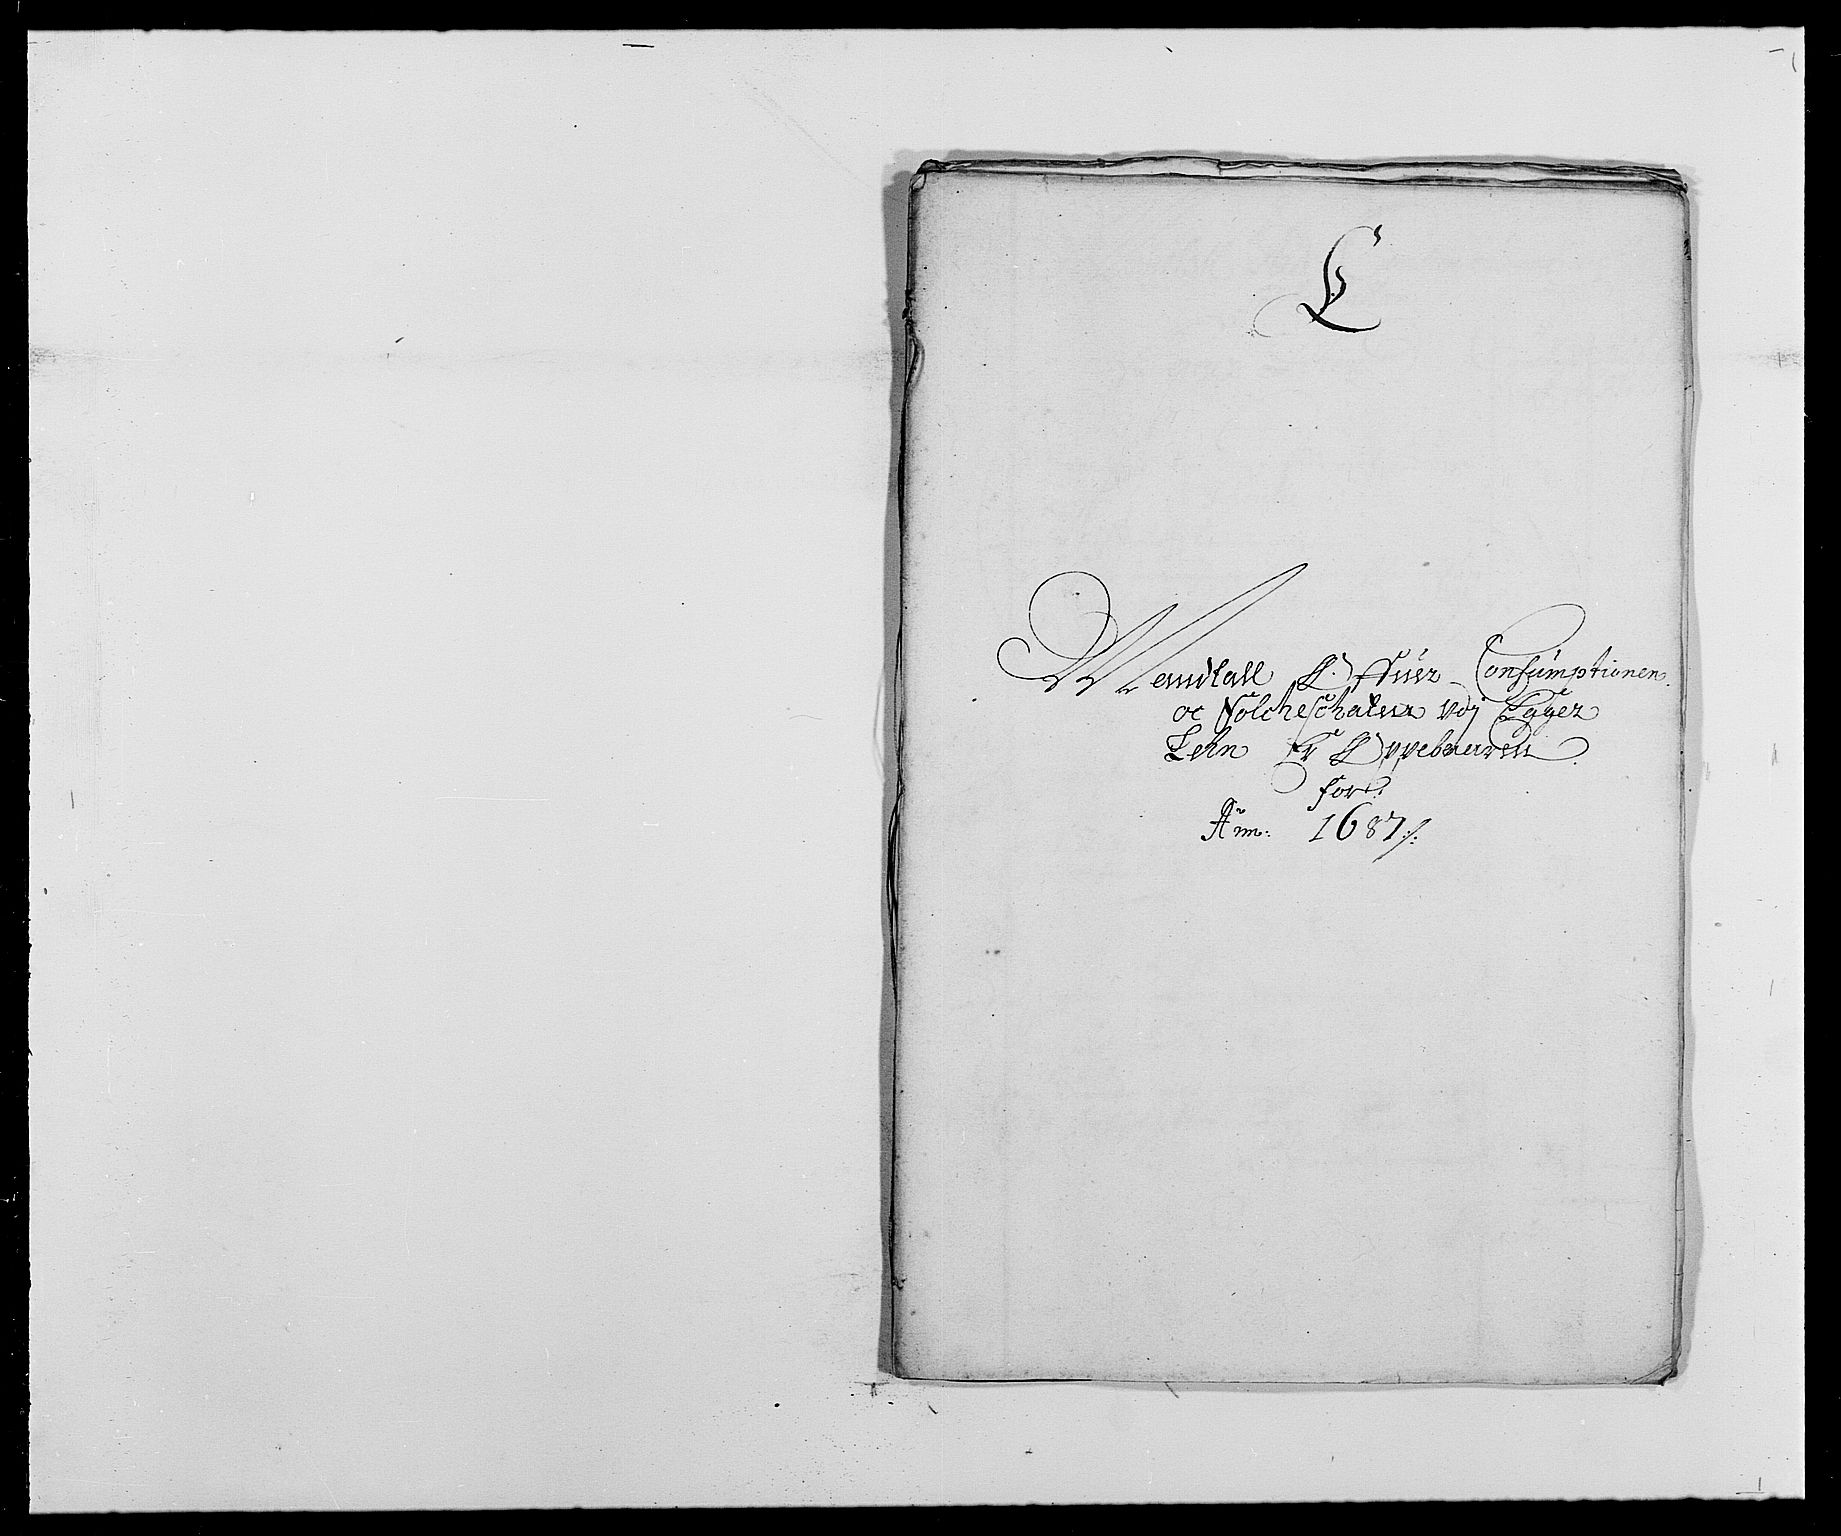 L
Mandtall Offuer Consumptionen
oc Folcheschatten Udj Egger
Lehn Er Oppebaaren
for
Ao̅: 1687 ./.